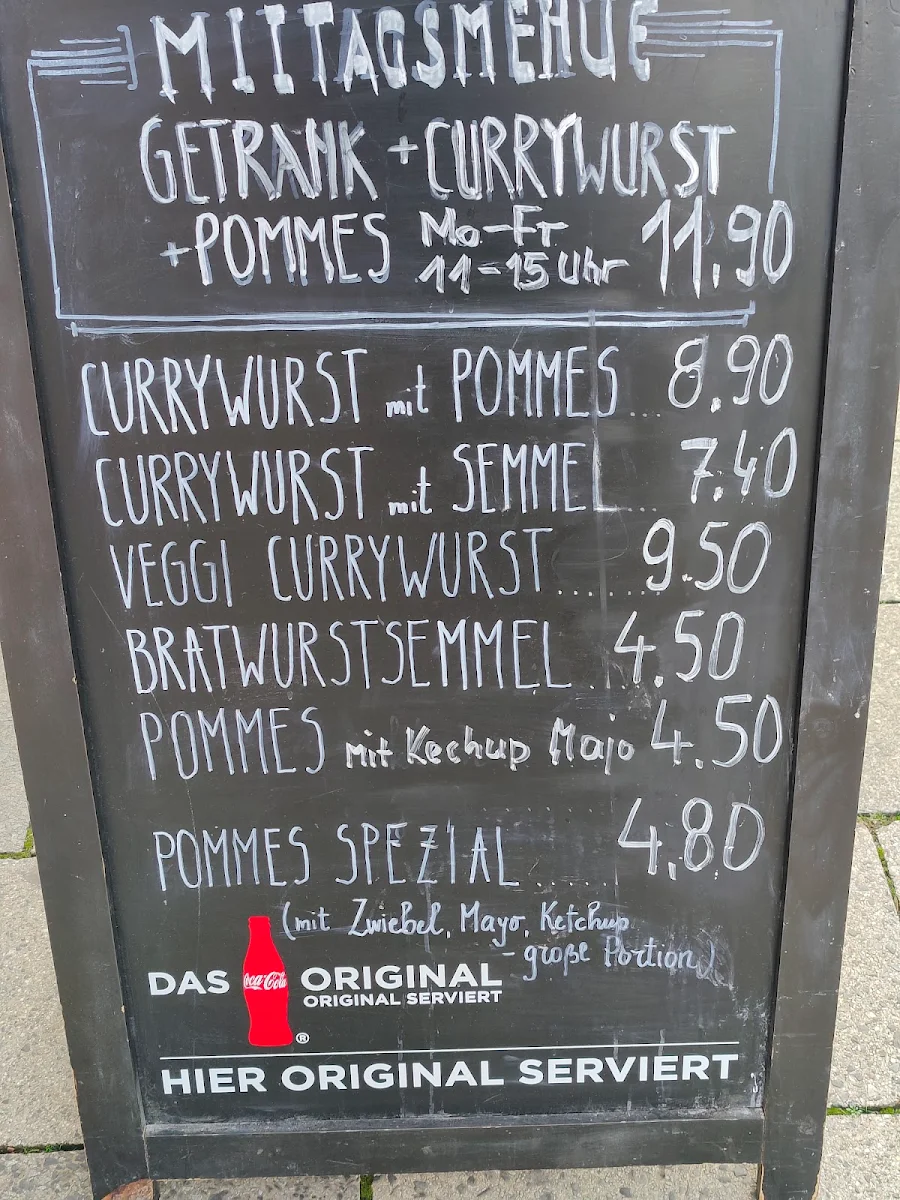 MITTAGSMENUE
GETRANK + CURRYWURST
+ POMMES Mo-Fr 11-15 Uhr 11.90
CURRYWURST mit POMMES... 8.90
CURRYWURST mit SEMMEL... 7.40
VEGGI CURRYWURST...... 9.50
BRATWURSTSEMMEL .. 4.50
POMMES mit Kechup Majo 4.50
POMMES SPEZIAL ..... 4.80
(mit Zwiebel, Mayo, Ketchup
- große Portion)
DAS Coca-Cola ORIGINAL
ORIGINAL SERVIERT
®
HIER ORIGINAL SERVIERT